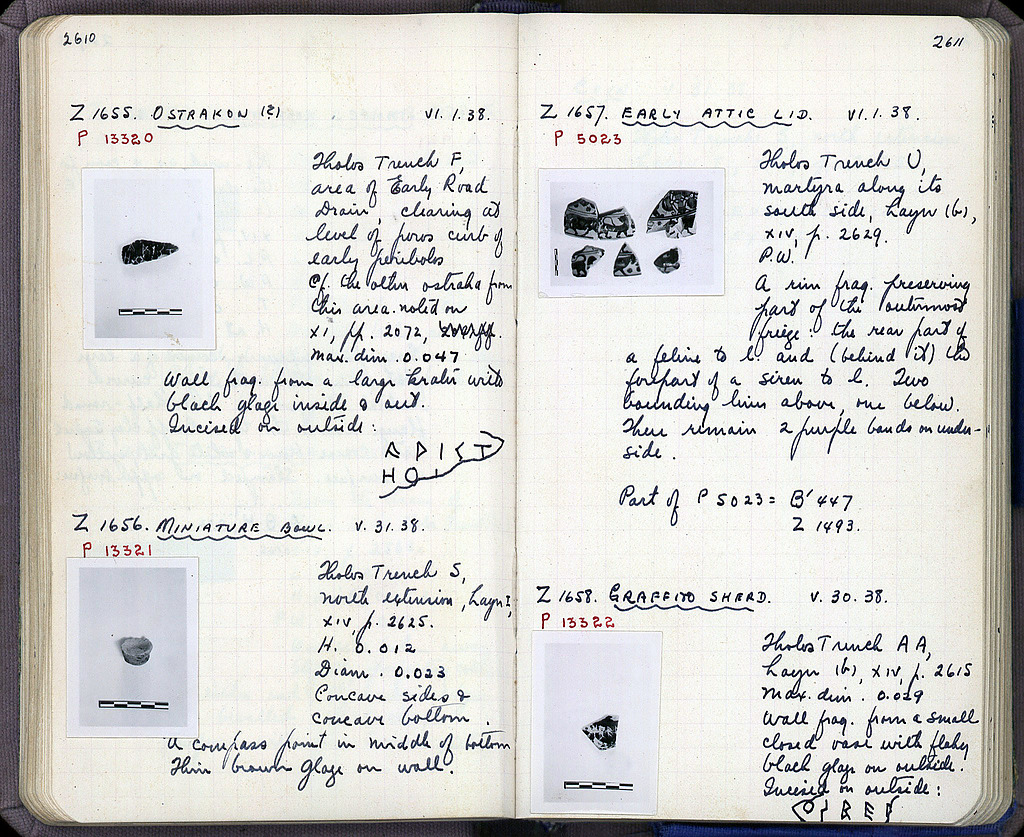 2610
Z 1655. OSTRAKON (?) VI.1.38.
P 13320
Tholos Trench F,
area of Early Road
Drain, clearing at
level of poros curb of
early peribolos
Cf. the other ostraka from
this area noted on
XI, pp. 2072,
Max. dim. 0.047
Wall frag. from a large krater with
black glaze inside & out.
Incised on outside:
Α Ρ Ι Σ Τ
H O
Z 1656. MINIATURE BOWL. V.31.38.
P 13321
Tholos Trench S,
north extension, Layer I,
XIV, p. 2625.
H. 0.012
Diam. 0.023
Concave sides &
concave bottom.
A compass point in middle of bottom
Thin brown glaze on wall.
2611
Z 1657. EARLY ATTIC LID. VI.1.38.
P 5023
Tholos Trench U,
martyra along its
south side, Layer (b),
XIV, p. 2629.
P.W.
A rim frag. preserving
part of the outermost
frieze: the rear part of
a feline to l. and (behind it) the
forepart of a siren to l. Two
bounding lines above, one below.
There remain 2 purple bands on under-
side.
Part of P 5023 = B' 447
Z 1493.
Z 1658. GRAFFITO SHERD. V.30.38.
P 13322
Tholos Trench AA,
Layer (b), XIV, p. 2615
Max. dim. 0.029
Wall frag. from a small
closed vase with flaky
black glaze on outside.
Incised on outside: